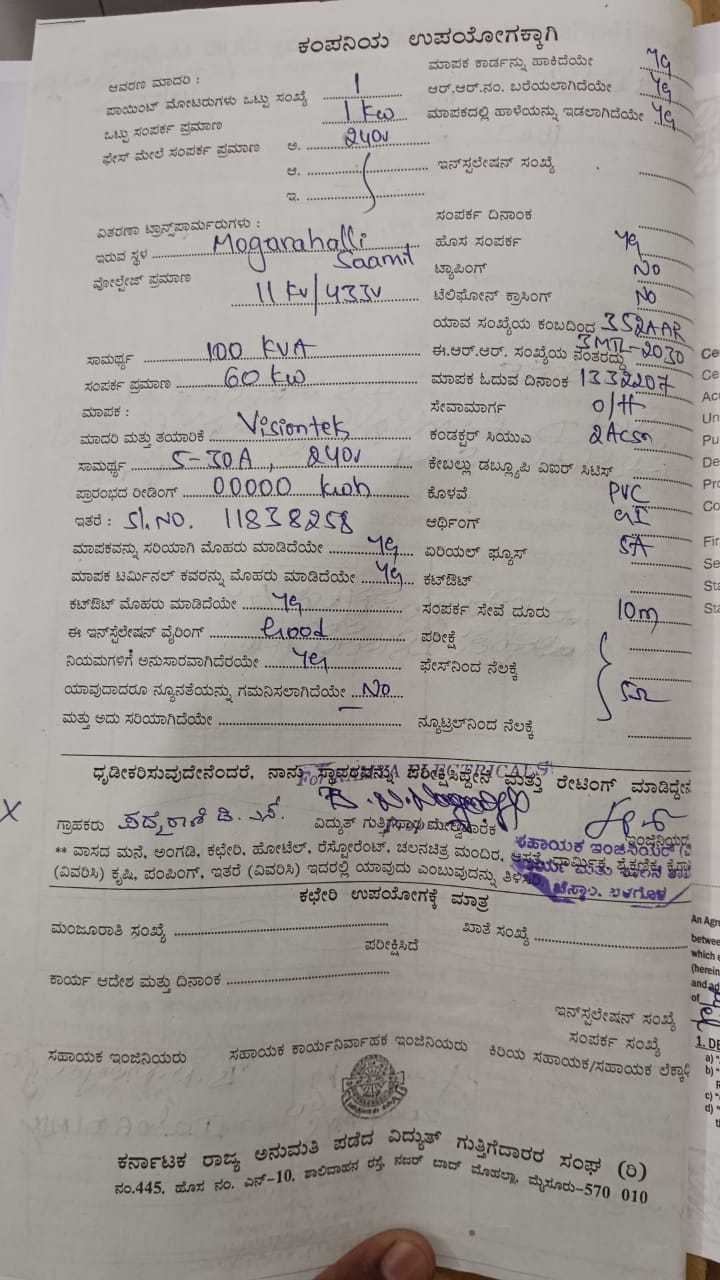 ಕಂಪನಿಯ ಉಪಯೋಗಕ್ಕಾಗಿ
ಆವರಣ ಮಾದರಿ :
ಮಾಪಕ ಕಾರ್ಡನ್ನು ಹಾಕಿದೆಯೇ Yes
ಪಾಯಿಂಟ್ ಮೋಟರುಗಳು ಒಟ್ಟು ಸಂಖ್ಯೆ 1
ಆರ್.ಆರ್.ನಂ. ಬರೆಯಲಾಗಿದೆಯೇ Yes
ಒಟ್ಟು ಸಂಪರ್ಕ ಪ್ರಮಾಣ 1 KW
ಮಾಪಕದಲ್ಲಿ ಹಾಳೆಯನ್ನು ಇಡಲಾಗಿದೆಯೇ Yes
ಫೇಸ್ ಮೇಲೆ ಸಂಪರ್ಕ ಪ್ರಮಾಣ ಅ. 240v
ಆ.
ಇನ್‌ಸ್ಟಲೇಷನ್ ಸಂಖ್ಯೆ
ಇ.
ಸಂಪರ್ಕ ದಿನಾಂಕ
ವಿತರಣಾ ಟ್ರಾನ್ಸ್‌ಫಾರ್ಮರುಗಳು :
ಇರುವ ಸ್ಥಳ Mogarahalli
ಹೊಸ ಸಂಪರ್ಕ Yes
ಟ್ಯಾಪಿಂಗ್ No
ವೋಲ್ಟೇಜ್ ಪ್ರಮಾಣ 11 KV/433V
ಟೆಲಿಫೋನ್ ಕ್ರಾಸಿಂಗ್ No
ಯಾವ ಸಂಖ್ಯೆಯ ಕಂಬದಿಂದ 352AAR
ಸಾಮರ್ಥ್ಯ 100 KVA
ಈ.ಆರ್.ಆರ್. ಸಂಖ್ಯೆಯ ನಂತರದ್ದು 3MTL-2030
ಸಂಪರ್ಕ ಪ್ರಮಾಣ 60 KW
ಮಾಪಕ ಓದುವ ದಿನಾಂಕ 1332207
ಮಾಪಕ :
ಸೇವಾಮಾರ್ಗ O/H
ಮಾದರಿ ಮತ್ತು ತಯಾರಿಕೆ Visiontek
ಕಂಡಕ್ಟರ್ ಸಿಯುಎ
ಸಾಮರ್ಥ್ಯ 5-30A, 240v
ಕೇಬಲ್ಲು ಡಬ್ಲ್ಯೂಪಿ ವಿಐರ್ ಸಿಟಿಸ್
ಪ್ರಾರಂಭದ ರೀಡಿಂಗ್ 00000 kwh
ಕೊಳವೆ PVC
ಇತರೆ : Sl.No. 11838258
ಆರ್ಥಿಂಗ್ GI
ಮಾಪಕವನ್ನು ಸರಿಯಾಗಿ ಮೊಹರು ಮಾಡಿದೆಯೇ Yes
ಏರಿಯಲ್ ಫ್ಯೂಸ್ 5A
ಮಾಪಕ ಟರ್ಮಿನಲ್ ಕವರನ್ನು ಮೊಹರು ಮಾಡಿದೆಯೇ Yes
ಕಟ್‌ಔಟ್
ಕಟ್‌ಔಟ್ ಮೊಹರು ಮಾಡಿದೆಯೇ Yes
ಸಂಪರ್ಕ ಸೇವೆ ದೂರು 10m
ಈ ಇನ್‌ಸ್ಟಲೇಷನ್ ವೈರಿಂಗ್ Good
ಪರೀಕ್ಷೆ
ನಿಯಮಗಳಿಗೆ ಅನುಸಾರವಾಗಿದೆರಯೇ Yes
ಫೇಸ್‌ನಿಂದ ನೆಲಕ್ಕೆ
ಯಾವುದಾದರೂ ನ್ಯೂನತೆಯನ್ನು ಗಮನಿಸಲಾಗಿದೆಯೇ No
5Ω
ಮತ್ತು ಅದು ಸರಿಯಾಗಿದೆಯೇ
ನ್ಯೂಟ್ರಲ್‌ನಿಂದ ನೆಲಕ್ಕೆ
ಧೃಡೀಕರಿಸುವುದೇನೆಂದರೆ, ನಾನು ಸ್ಥಾವರವನ್ನು ಪರೀಕ್ಷಿಸಿದ್ದೇನೆ ಮತ್ತು ರೇಟಿಂಗ್ ಮಾಡಿದ್ದೇನೆ
ELECTRICALS
X ಗ್ರಾಹಕರು
ವಿದ್ಯುತ್ ಗುತ್ತಿಗೆದಾರ/ಮೇಲ್ವಿಚಾರಕ
ಇಂಜಿನಿಯರ
ಸಹಾಯಕ ಇಂಜಿನಿಯರ್
** ವಾಸದ ಮನೆ, ಅಂಗಡಿ, ಕಛೇರಿ, ಹೋಟೆಲ್, ರೆಸ್ಟೋರೆಂಟ್, ಚಲನಚಿತ್ರ ಮಂದಿರ, ಆಸ್ಪತ್ರೆ, ಧಾರ್ಮಿಕ, ಶೈಕ್ಷಣಿಕ,
(ವಿವರಿಸಿ) ಕೃಷಿ, ಪಂಪಿಂಗ್, ಇತರೆ (ವಿವರಿಸಿ) ಇದರಲ್ಲಿ ಯಾವುದು ಎಂಬುವುದನ್ನು ತಿಳಿಸಿ.
ಕಛೇರಿ ಉಪಯೋಗಕ್ಕೆ ಮಾತ್ರ
ಮಂಜೂರಾತಿ ಸಂಖ್ಯೆ
ಖಾತೆ ಸಂಖ್ಯೆ
ಪರೀಕ್ಷಿಸಿದೆ
ಕಾರ್ಯ ಆದೇಶ ಮತ್ತು ದಿನಾಂಕ
ಇನ್‌ಸ್ಟಲೇಷನ್ ಸಂಖ್ಯೆ
ಸಂಪರ್ಕ ಸಂಖ್ಯೆ
ಸಹಾಯಕ ಇಂಜಿನಿಯರು
ಸಹಾಯಕ ಕಾರ್ಯನಿರ್ವಾಹಕ ಇಂಜಿನಿಯರು
ಕಿರಿಯ ಸಹಾಯಕ/ಸಹಾಯಕ ಲೆಕ್ಕಾಧಿ
ಕರ್ನಾಟಕ ರಾಜ್ಯ ಅನುಮತಿ ಪಡೆದ ವಿದ್ಯುತ್ ಗುತ್ತಿಗೆದಾರರ ಸಂಘ (ರಿ)
ನಂ.445, ಹೊಸ ನಂ. ಎನ್-10, ಶಾಲಿವಾಹನ ರಸ್ತೆ, ನಜರ್ ಬಾದ್ ಮೊಹಲ್ಲಾ, ಮೈಸೂರು-570 010
An Agre
betwee
which e
(herein
and ad
of
1. DE